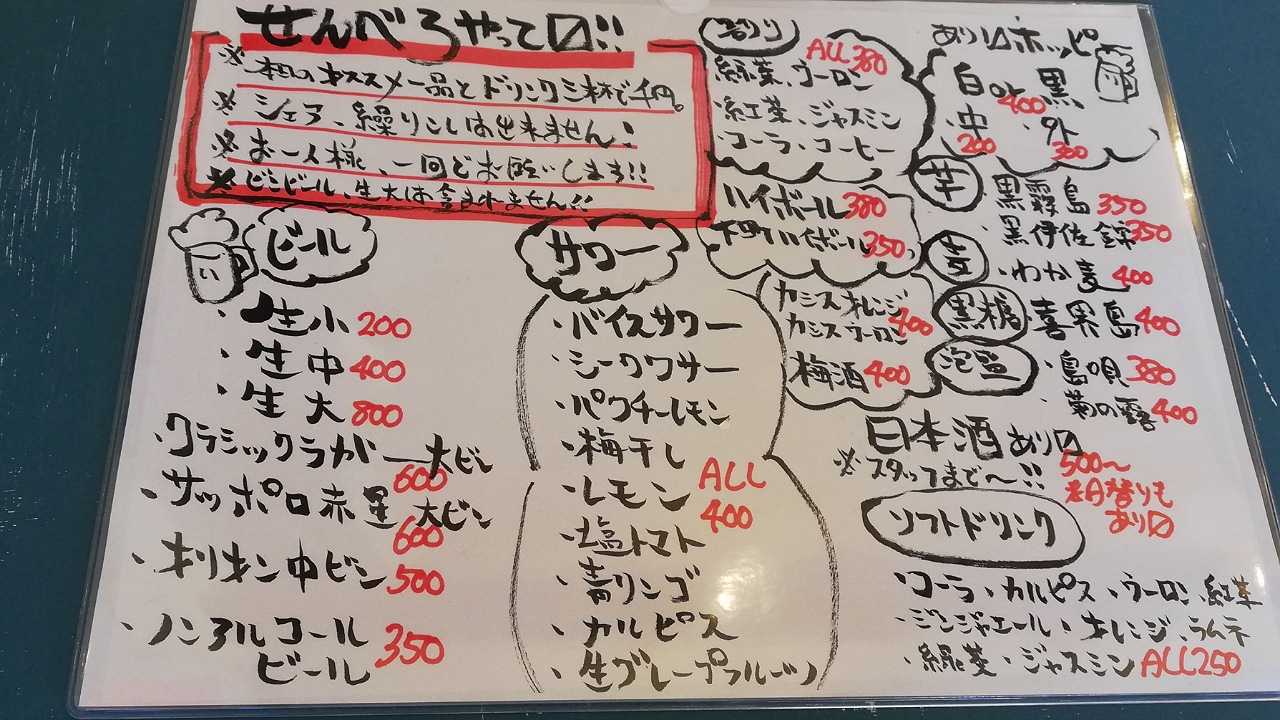 せんべろやって〼!!
※本日のオススメ一品とドリンク三杯で千円。
※シェア、繰りこしは出来ません!
※お一人様、一回でお願いします!!
※ビンビール、生大は含まれません!!
ビール
・生小 200
・生中 400
・生大 800
クラシックラガー大ビン 600
・サッポロ赤星大ビン 600
・キリン中ビン 500
・ノンアルコール
ビール 350
サワー
・バイスサワー
・シークワサー
・パクチーレモン
・梅干し
・レモン
・塩トマト
・青リンゴ
・カルピス
・生グレープフルーツ
ALL
400
割り
ALL 380
緑茶、ウーロン
紅茶、ジャスミン
コーラ・コーヒー
ハイボール 380
下町ハイボール 350
カシスオレンジ
カシスウーロン 400
梅酒 400
あり〼ホッピー
白or黒
400
・中 ・外
200 300
芋
黒霧島 350
・黒伊佐錦 350
麦
・わか麦 400
黒糖
・喜界島 400
泡盛
・島唄 380
・菊の露 400
日本酒あり〼
※スタッフまで〜!!
500〜
※日替りも
あり〼
ソフトドリンク
・コーラ・カルピス・ウーロン、紅茶
・ジンジャエール・オレンジ、ラムネ
・緑茶・ジャスミン ALL 250